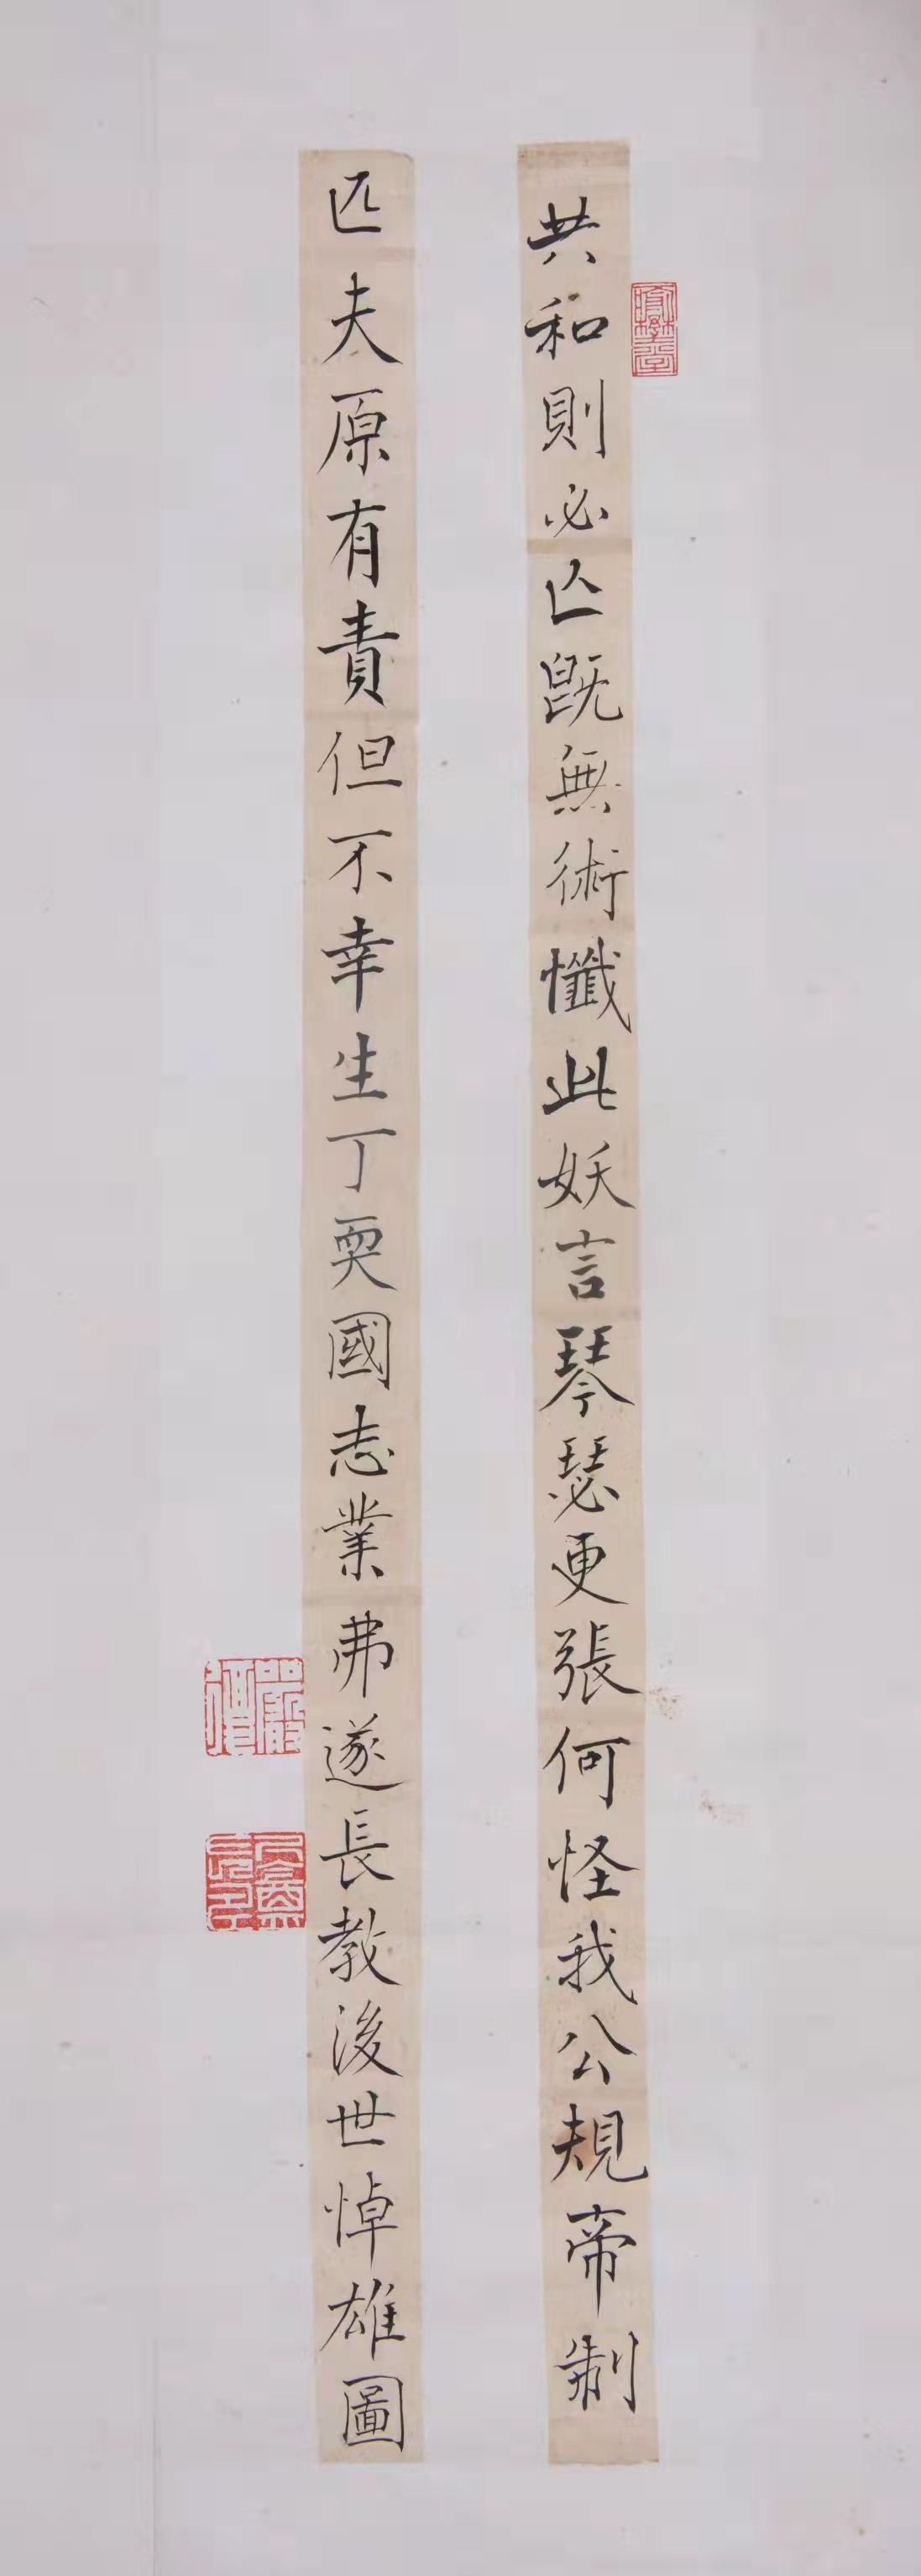 共和則必亾旣無術懺此妖言琴瑟更張何怪我公規帝制
匹夫原有責但不幸生丁耎國志業弗遂長教後世悼雄圖